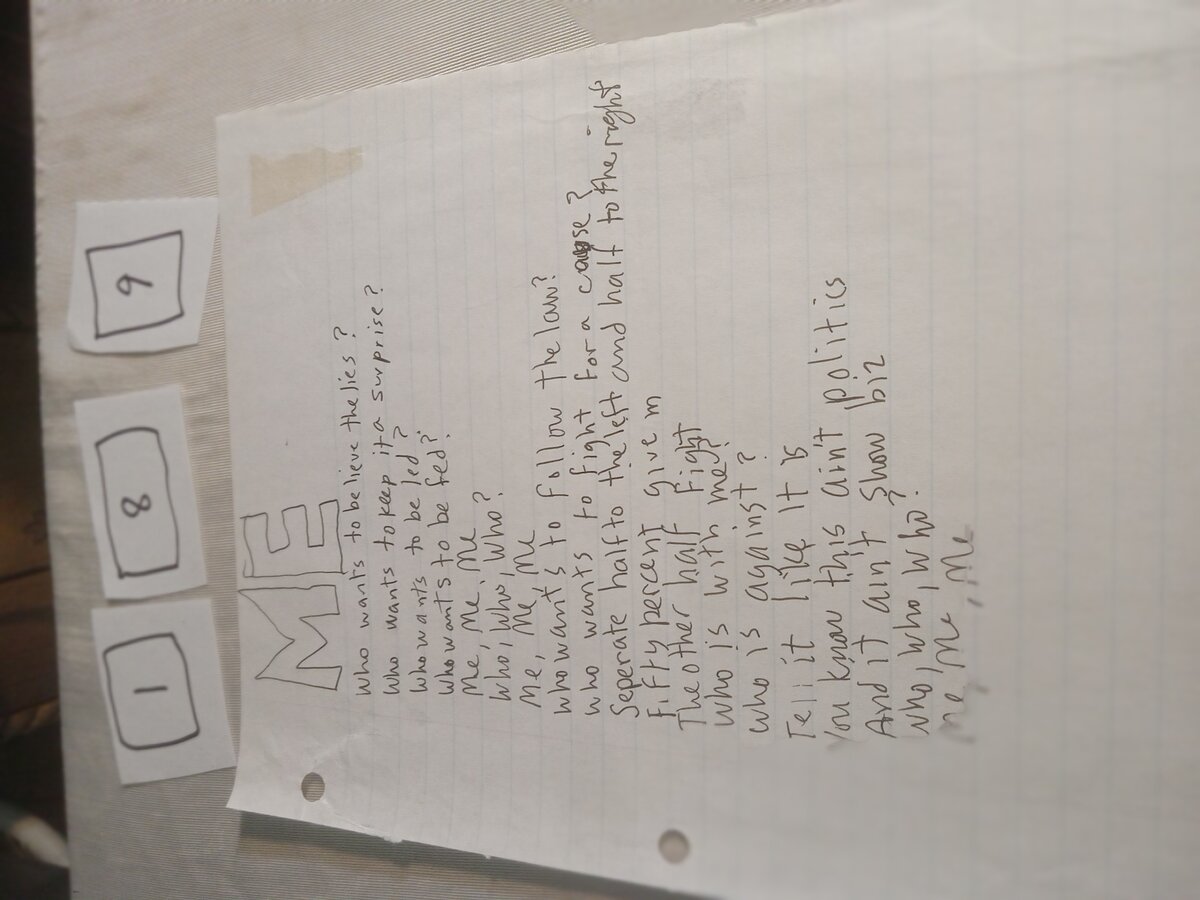 1 8 9
ME
Who wants to believe the lies?
Who wants to keep it a surprise?
Who wants to be led?
Who wants to be fed?
Me, Me, Me
Who, Who, Who?
Me, Me, Me
Who wants to follow the law?
Who wants to fight for a cause?
Seperate half to the left and half to the right
Fifty percent give in
The other half fight
Who is with me?
Who is against?
Tell it like it is
You know this ain't politics
And it ain't show biz
Who, who, who?
Me, Me, Me